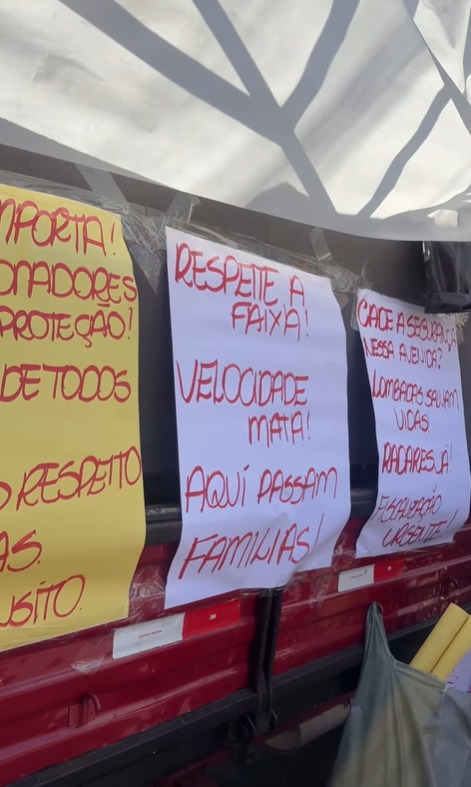 MPORTA!
ONADORES
PROTEÇÃO!
DE TODOS
O RESPEITO
AS.
NSITO.
RESPEITE A
FAIXA!
VELOCIDADE
MATA!
AQUÍ PASSAM
FAMÍLIAS!
CADE A SEGURANÇA
NESSA AVENIDA?
LOMBADAS SALVAM
VIDAS!
RADARES JÁ!
FISCALIZAÇÃO
URGENTE!